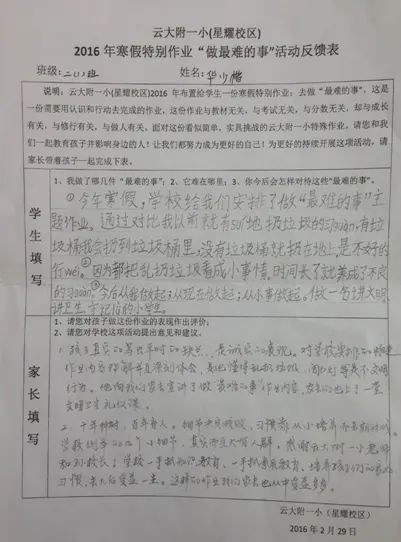 云大附一小(星耀校区)
2016年寒假特别作业“做最难的事”活动反馈表
班级:二(1)班 姓名:
说明:云大附一小(星耀校区)2016年布置给学生一份寒假特别作业:去做“最难的事”,这是
一份需要用认识和行动去完成的作业,这份作业与教材无关、与考试无关,与分数无关,却与成长
有关,与修行有关,与做人有关。面对这份看似简单,实具挑战的云大附一小特殊作业,请您和我
们一起教育孩子并影响身边的人!让我们都努力成为更好的自己!为更好的持续开展这项活动,请
家长带着孩子一起完成下表。
学生填写
1、我做了哪几件“最难的事”;2、它难在哪里;3、你今后会怎样对待这些“最难的事”。
①今年寒假,学校给我们安排了做“最难的事”主
题作业。通过对比我以前就有sui地扔垃圾的习guàn,有垃
圾桶我会扔到垃圾桶里,没有垃圾桶就扔在地上,是不好的
行wéi。②因为都把乱扔垃圾看成小事情,时间长了就养成了不良
的习guàn。③今后从我做起;从现在做起;从小事做起。做一名讲文明、
讲卫生、守纪律的小学生。
家长填写
1、请您对孩子做这份作业的表现作出评价;
2、请您对学校这项活动提出意见和建议。
1、孩子真实的 平时的缺点,是诚实的表现。对学校安排的
作业内容理解并且深刻体会,是他懂得乱扔垃圾, 是不文明
行为。他向我们家长宣讲了做“最难的事”作业内容, 上了一堂
文明 礼仪课。
2、十年树树,百年育人。细节决定成败,习惯需从小培养
学校 小细节,真实而 。感谢云大附一小老师
和 校长!学校一手抓知识教育、一手抓素质教育,培养孩子们的
习惯, 受益一生。这样的作业我们家长也从中受益良多。
云大附一小(星耀校区)
2016年2月29日